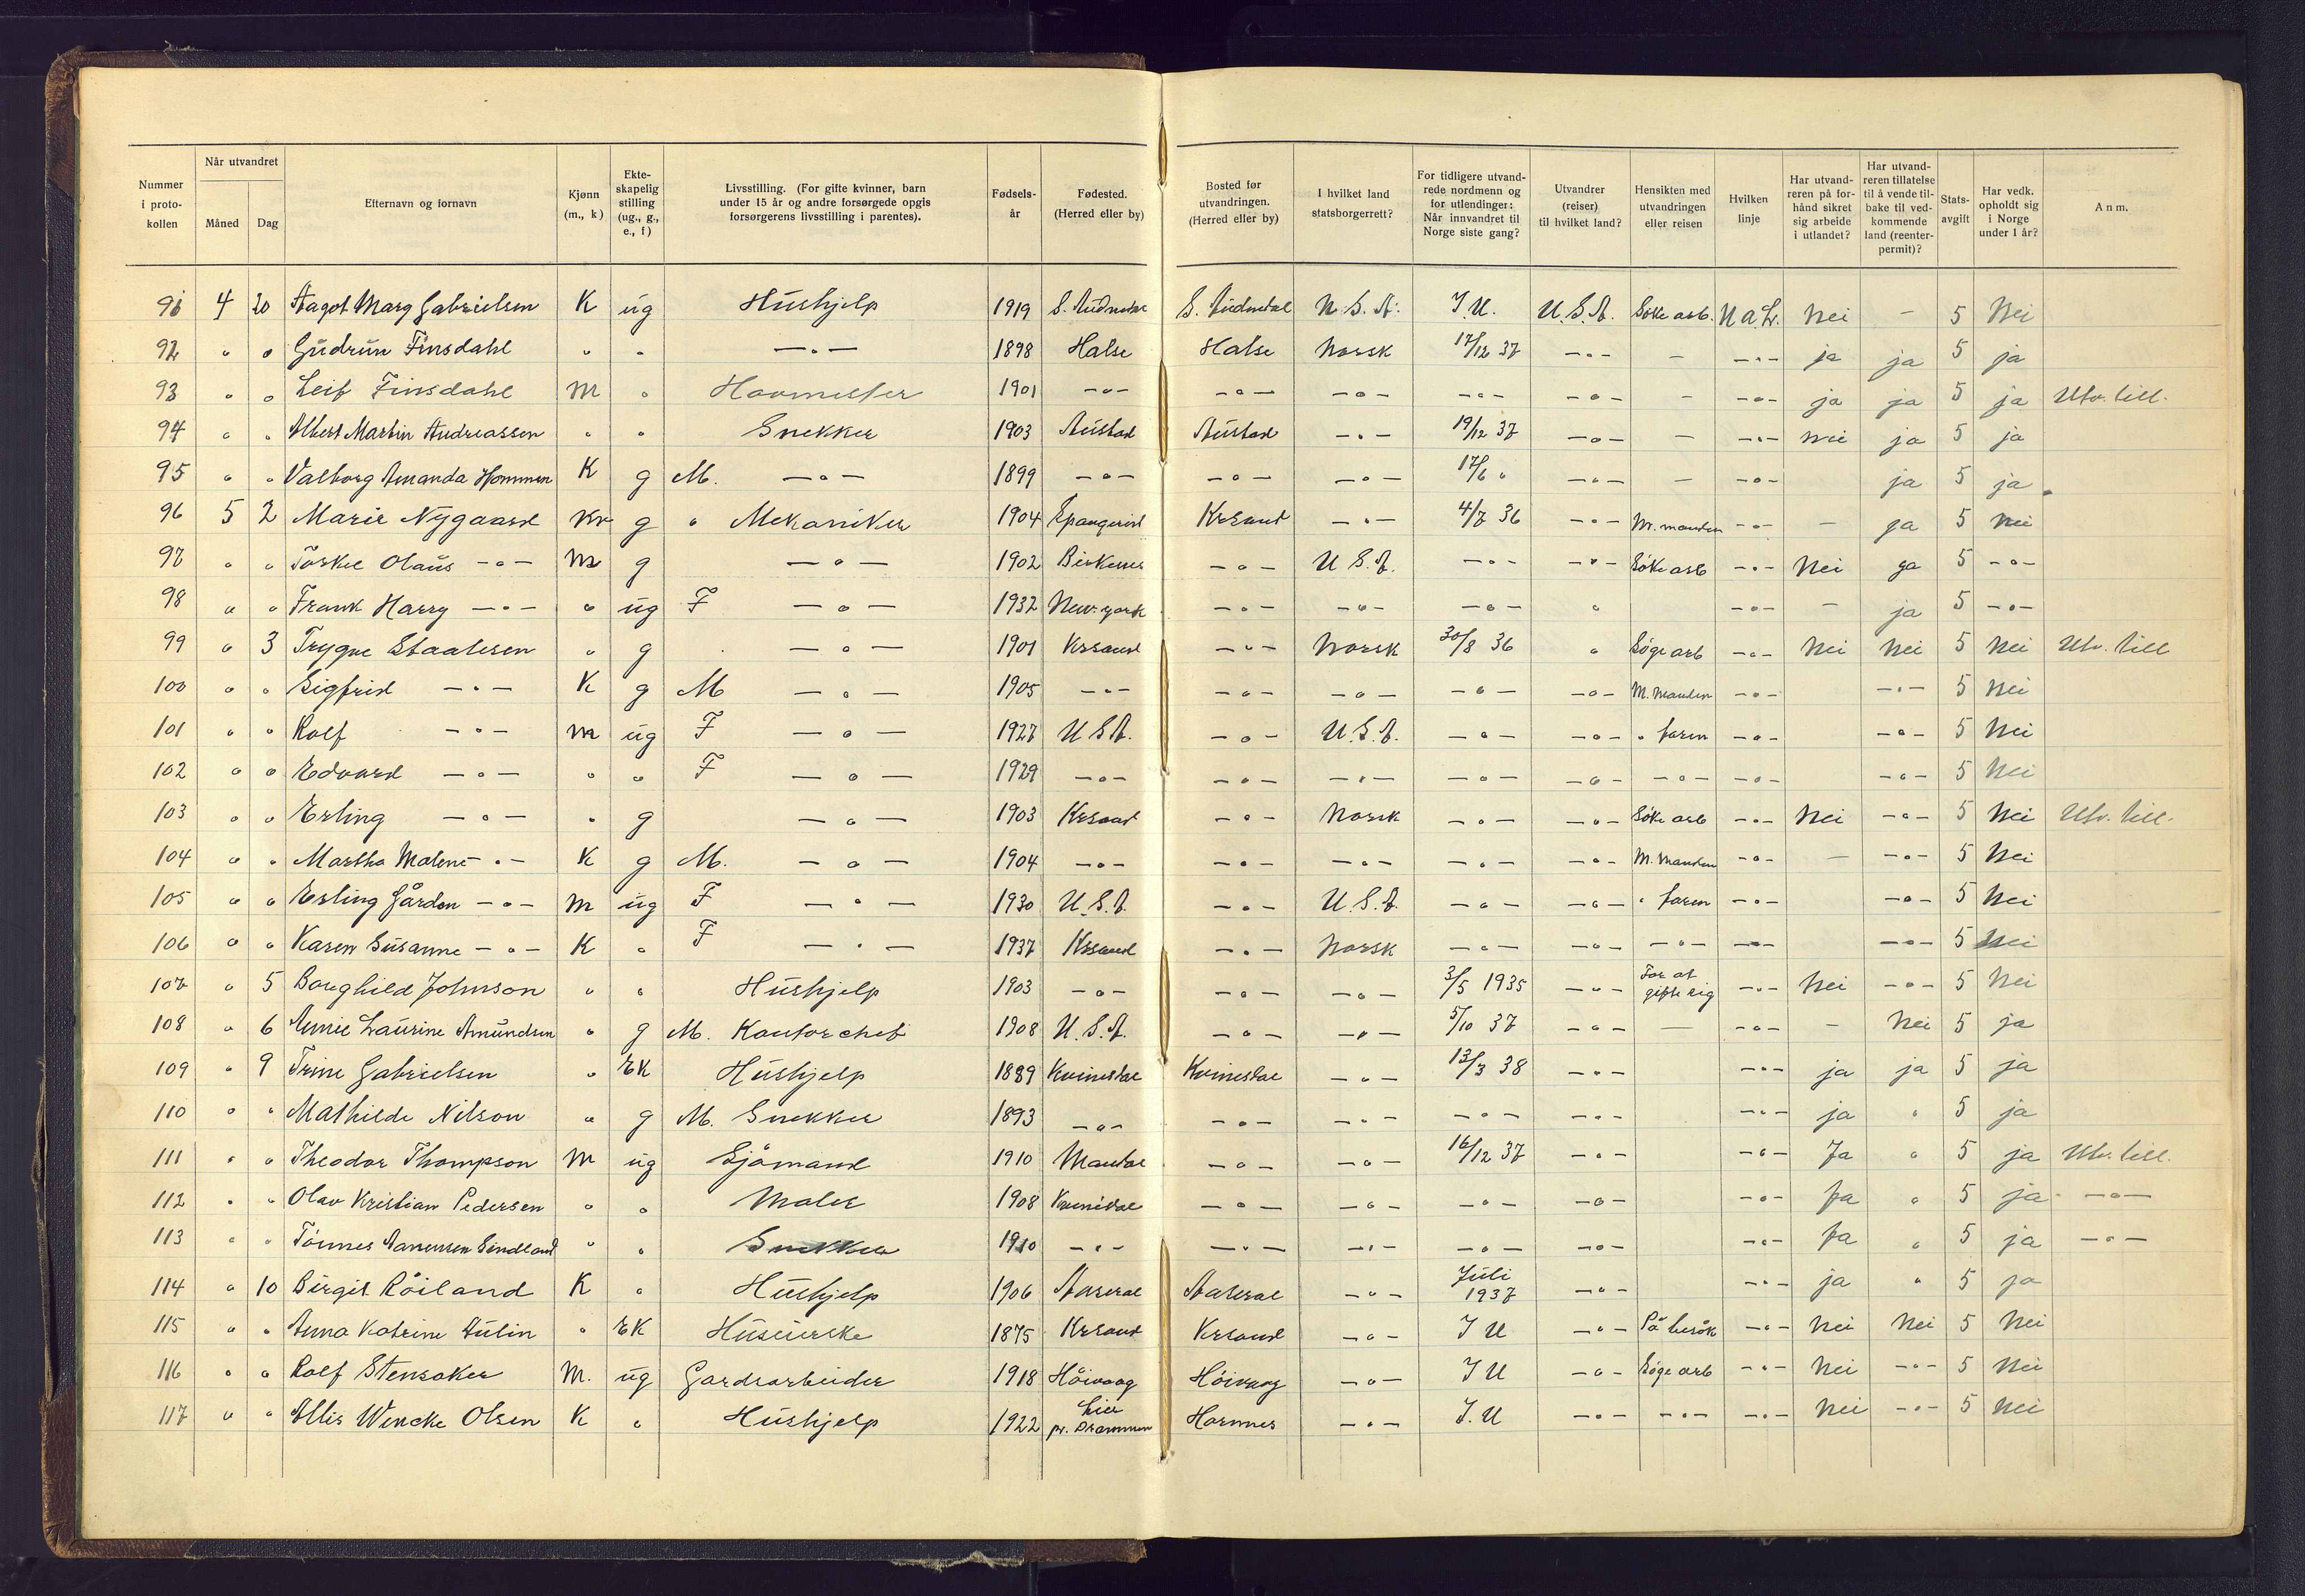 Nummer i proto- kollen | Når utvandret Måned | Dag | Efternavn og fornavn | Kjønn (m., k) | Ekte- skapelig stilling (ug., g., e., f) | Livsstilling. (For gifte kvinner, barn under 15 år og andre forsørgede opgis forsørgerens livsstilling i parentes). | Fødsels- år | Fødested. (Herred eller by) | Bosted før utvandringen. (Herred eller by) | I hvilket land statsborgerrett? | For tidligere utvand- rede nordmenn og for utlendinger: Når innvandret til Norge siste gang? | Utvandrer (reiser) til hvilket land? | Hensikten med utvandringen eller reisen | Hvilken linje | Har utvand- reren på for- hånd sikret sig arbeide i utlandet? | Har utvand- reren tillatelse til å vende til- bake til ved- kommende land (reenter- permit)? | Stats- avgift | Har vedk. opholdt sig i Norge under 1 år? | Anm.
91 | 4 | 20 | Aagot Marg Gabrielsen | K | ug | Hushjelp | 1919 | S. Audnedal | S. Audnedal | U.S.A. | I.U. | U.S.A. | Söke arb. | N a L. | Nei | - | 5 | Nei
92 | " | " | Gudrun Finsdahl | " | " | -"- | 1898 | Halse | Halse | Norsk | 17/12 37 | -"- | - | -"- | ja | ja | 5 | ja
93 | " | " | Leif Finsdahl | M | " | Hovmester | 1901 | -"- | -"- | -"- | -"- | -"- | - | -"- | ja | ja | 5 | ja | Utv. till.
94 | " | " | Albert Martin Andreassen | " | " | Snekker | 1903 | Austad | Austad | -"- | 19/12 37 | -"- | - | -"- | nei | ja | 5 | ja
95 | " | " | Valborg Amanda Hommen | K | g | M. -"- | 1899 | -"- | -"- | -"- | 17/6 " | -"- | - | -"- | | ja | 5 | ja
96 | 5 | 2 | Marie Nygaard | Kv | g | " Mekaniker | 1904 | Krsand | -"- | 4/7 36 | -"- | M. manden | -"- | - | ja | 5 | nei
97 | " | " | Torkel Olaus -"- | m | g | -"- | 1902 | Birkenes | -"- | U.S.A. | -"- | -"- | Söke arb | -"- | Nei | ja | 5 | -"-
98 | " | " | Frank Harry -"- | " | ug | F -"- | 1932 | New-york | -"- | -"- | -"- | " | | -"- | - | ja | 5 | -"-
99 | " | 3 | Trygve Staalesen | " | g | -"- | 1901 | Krsand | -"- | Norsk | 30/8 36 | " | Söge arb | -"- | Nei | Nei | 5 | Nei | Utv. till
100 | " | " | Sigfrid -"- | K | g | M -"- | 1905 | -"- | -"- | -"- | -"- | -"- | M. Manden | -"- | | -"- | 5 | Nei
101 | " | " | Rolf -"- | m | ug | F -"- | 1927 | U.S.A. | -"- | U.S.A. | -"- | -"- | " faren | -"- | | -"- | 5 | Nei
102 | " | " | Edvard -"- | " | " | F -"- | 1929 | -"- | -"- | -"- | -"- | -"- | -"- | -"- | | -"- | 5 | Nei
103 | " | " | Erling -"- | " | g | -"- | 1903 | Krsand | -"- | Norsk | -"- | -"- | Söke arb | -"- | Nei | -"- | 5 | Nei | Utv. till.
104 | " | " | Martha Malene -"- | K | g | M. -"- | 1904 | -"- | -"- | -"- | -"- | -"- | M. Manden | -"- | - | -"- | 5 | Nei
105 | " | " | Erling Gården -"- | m | ug | F -"- | 1930 | U.S.A. | -"- | U.S.A. | -"- | -"- | " faren | -"- | | -"- | 5 | Nei
106 | " | " | Karen Susanne -"- | K | " | F -"- | 1937 | Krsand | -"- | Norsk | -"- | -"- | -"- | -"- | | -"- | 5 | Nei
107 | " | 5 | Borghild Johnson | " | " | Hushjelp | 1903 | -"- | -"- | -"- | 3/5 1935 | -"- | For at gifte sig | -"- | Nei | -"- | 5 | Nei
108 | " | 6 | Annie Laurine Amundsen | " | g | M. Kontorchef | 1908 | U.S.A. | -"- | -"- | 5/10 37 | -"- | - | -"- | - | Nei | 5 | ja
109 | " | 9 | Trine Gabrielsen | " | EK | Hushjelp | 1889 | Kvinesdal | Kvinesdal | -"- | 13/3 38 | -"- | | -"- | ja | ja | 5 | ja
110 | " | " | Mathilde Nilson | " | g | M. Snekker | 1893 | -"- | -"- | -"- | -"- | -"- | | -"- | ja | " | 5 | ja
111 | " | " | Theodor Thompson | M | ug | Sjömand | 1910 | Mandal | -"- | -"- | 16/12 37 | -"- | | -"- | Ja | " | 5 | ja | Utv. till.
112 | " | " | Olav Kristian Pedersen | " | " | Maler | 1908 | Kvinesdal | -"- | -"- | -"- | -"- | | -"- | Ja | " | 5 | ja | -"-
113 | " | " | Tönnes Aanensen Sindland | " | " | Snekker | 1910 | -"- | -"- | -"- | -"- | -"- | | -"- | Ja | " | 5 | ja | -"-
114 | " | 10 | Birgit Röiland | K | " | Hushjelp | 1906 | Aaseral | Aaseral | -"- | Juli 1937 | -"- | | -"- | ja | " | 5 | ja
115 | " | " | Anna Katrine Aulin | " | EK | Huseierske | 1875 | Krsand | Krsand | -"- | I U | -"- | På besök | -"- | Nei | Nei | 5 | Nei
116 | " | " | Rolf Stensaker | M. | ug | Gardsarbeider | 1918 | Höivaag | Höivaag | -"- | I U | -"- | Söge arb | -"- | Nei | -"- | 5 | Nei
117 | " | " | Allis Wencke Olsen | K | " | Hushjelp | 1922 | Lier pr. Drammen | Hornnes | -"- | I.U | -"- | -"- | -"- | Nei | -"- | 5 | Nei